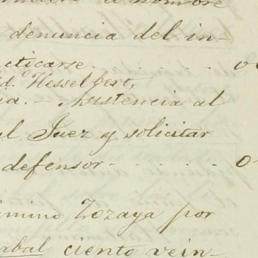 denuncia del in-
cticarse. . . . . . 0
d. Hesselbert,
ia. - Asistencia al
l Juez y solicitar
defensor. - . . . . 0
imino Zozaya por
abal ciento vein-